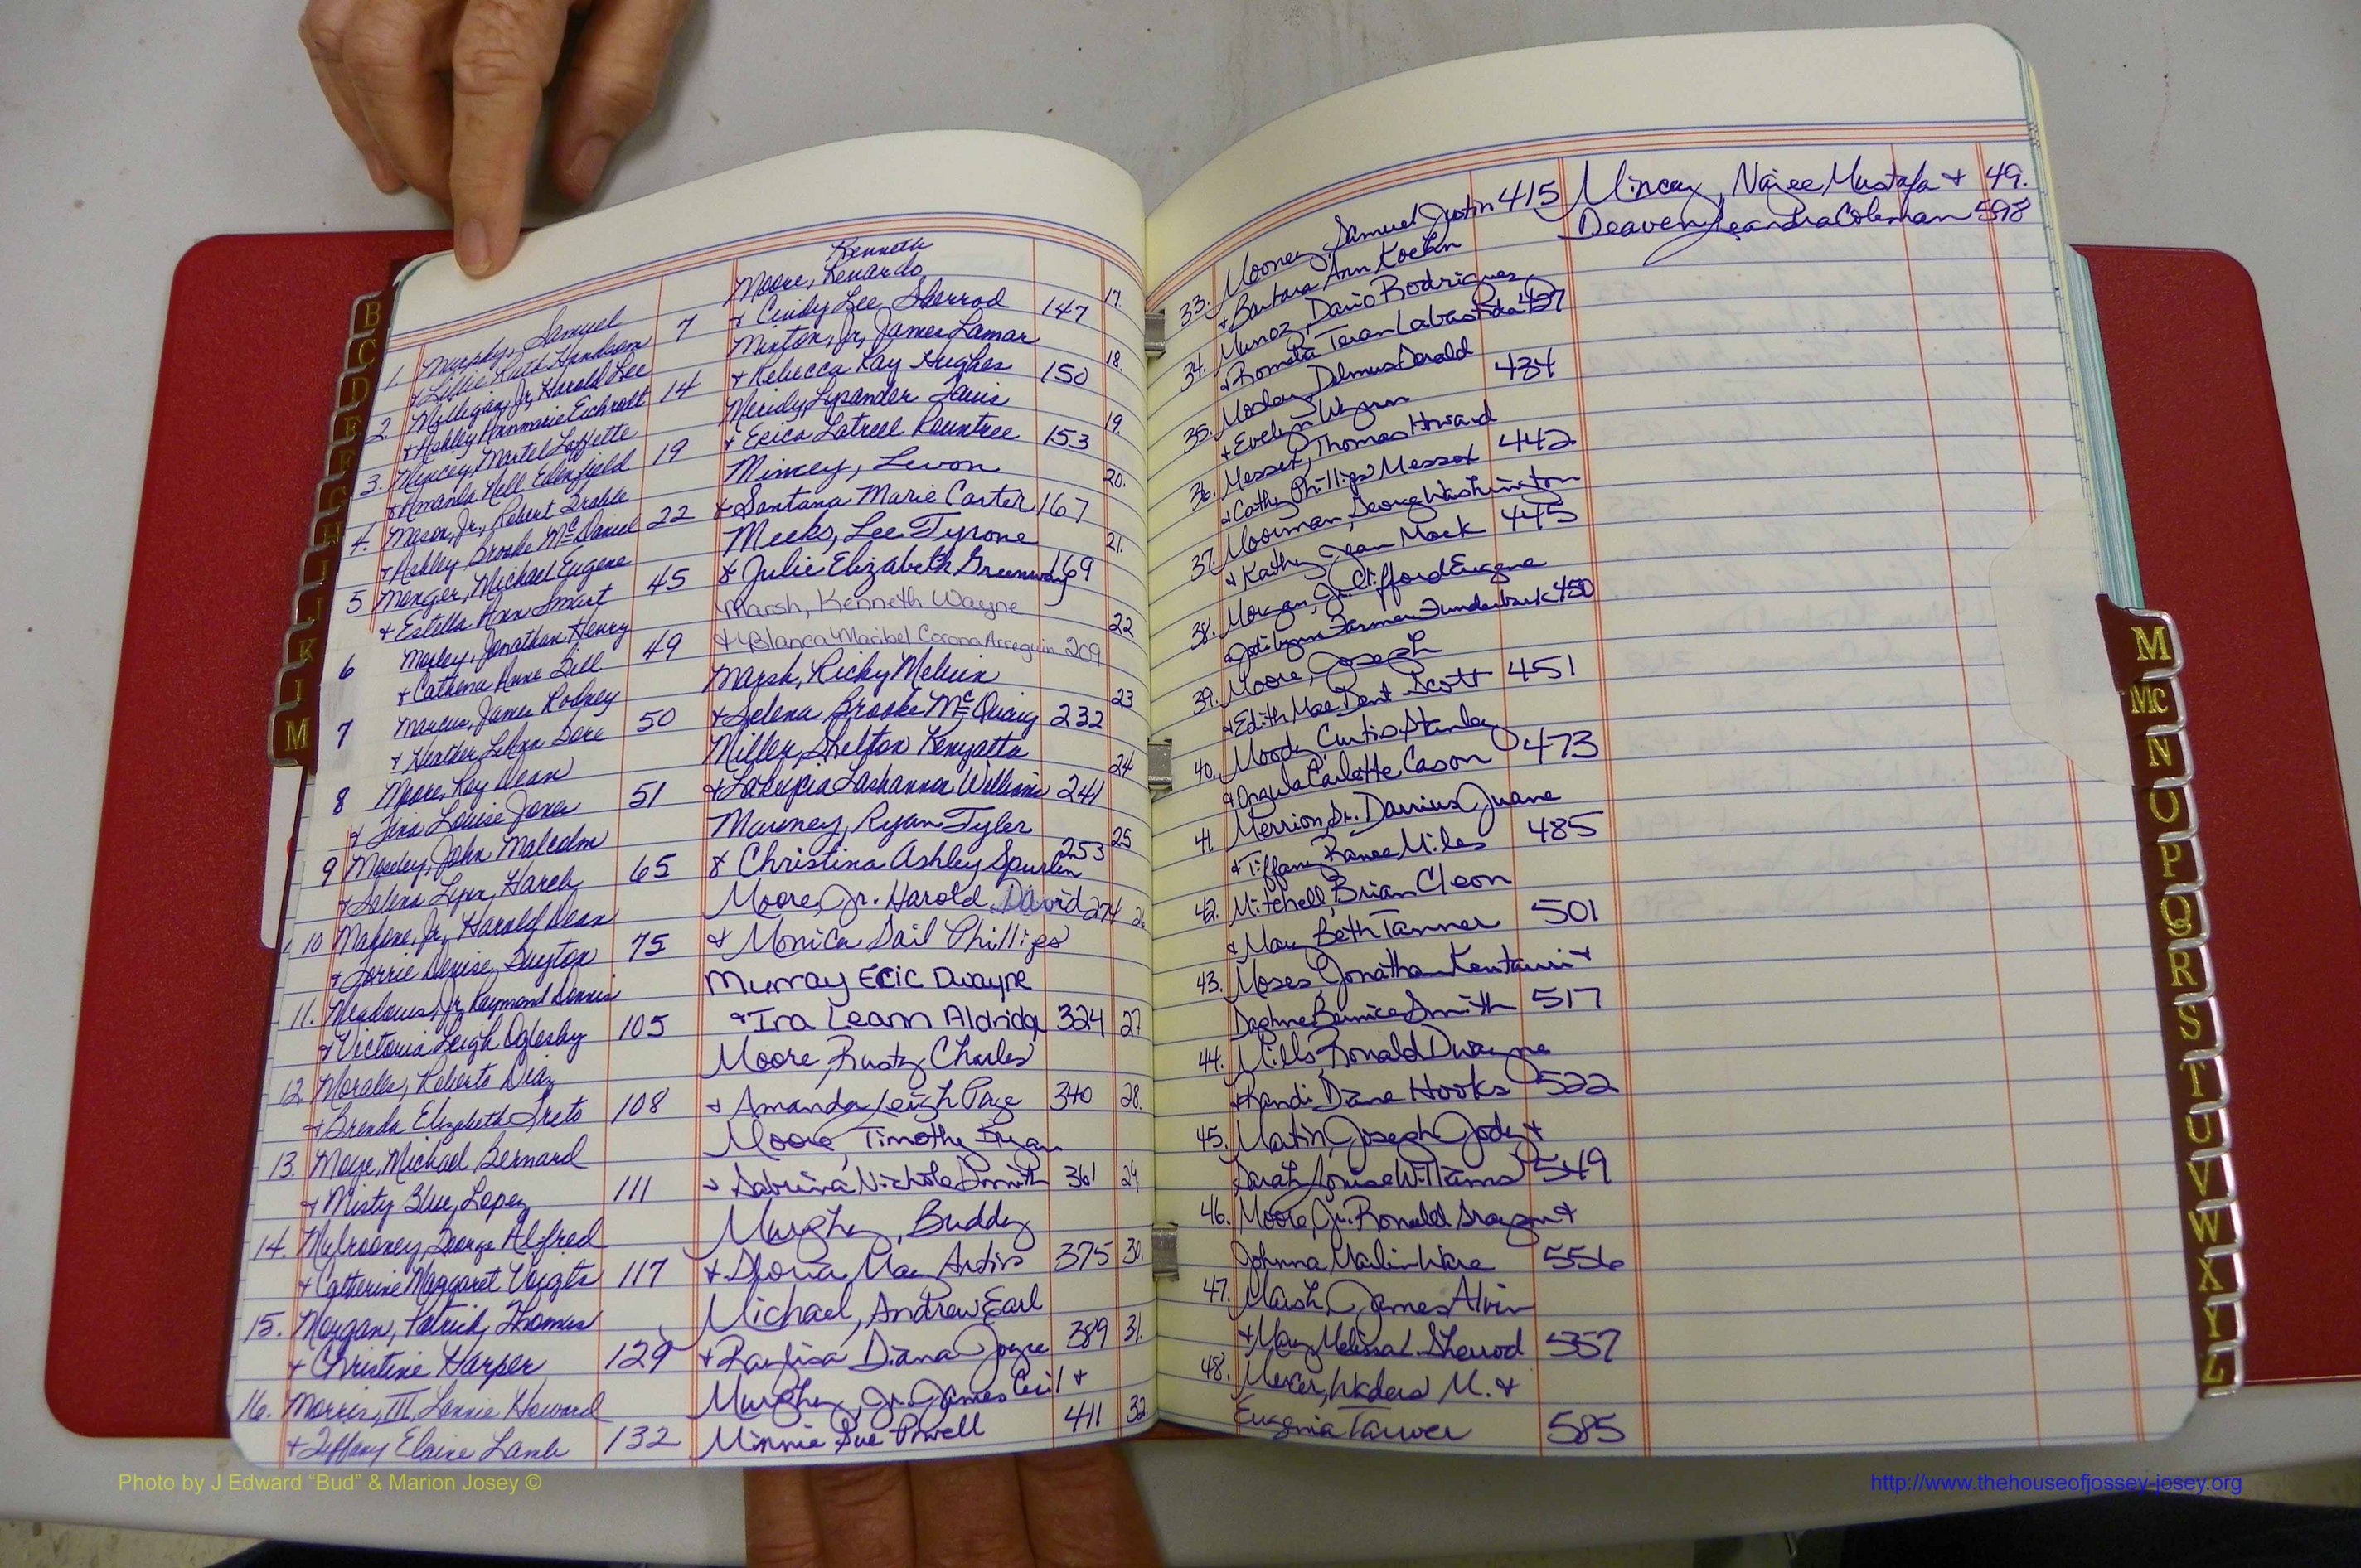 B
C
D
E
F
G
H
I
J
K
L
M
1. Murphy, Samuel
+ Lillie Ruth Henderson 7
2. Milligan, Jr, Harold Lee
+ Ashley Annmarie Eichholt 14
3. Mincey, Martel Laffette
+ Amanda Nell Edenfield 19
4. Mason, Jr., Robert Drable
+ Ashley Brooke McDaniel 22
5 Monger, Michael Eugene
+ Estella Ann Smart 45
6 Mosley, Jonathan Henry
+ Cathena Anne Bell 49
7 Marcus, James Rodney
+ Heather LeAnn Dore 50
8 Moore, Roy Dean
+ Tina Louise Jones 51
9 Moseley, John Malcolm
+ Selena Lynn Harch 65
10 Malone, Jr, Harold Dean
+ Jorrie Denise Guyton 75
11. Meadows, Jr, Raymond Dennis
+ Victoria Leigh Oglesby 105
12. Morales, Roberto Diaz
+ Brenda Elizabeth Freto 108
13. Moye, Michael Bernard
+ Misty Blue Lopez 111
14. Mulrooney, George Alfred
+ Catherine Margaret Voights 117
15. Morgan, Patrick Thomas
+ Christine Harper 129
16. Morris, III, Lonnie Howard
+ Tiffany Elaine Lamb 132
Kenneth
Moore, Renardo 17.
+ Cindy Lee Sherrod 147
Minton, Jr, James Lamar 18.
+ Rebecca Kay Hughes 150
Meridy, Lysander Davis 19.
+ Erica Latreel Rountree 153
Mincey, Levon 20.
+ Santana Marie Carter 167
Meeks, Lee Tyrone 21.
& Julie Elizabeth Greenway 169
Marsh, Kenneth Wayne 22
+ Blanca Maribel Corona Arreguin 209
Marsh, Ricky Melvin 23
+ Selena Brooke McQuaig 232
Miller, Shelton Kenyatta 24
+ Lakeycia Lashannon Williams 241
Mauney, Ryan Tyler 25
& Christina Ashley Spurlin 253
Moore, Jr. Harold David 274 26
+ Monica Gail Phillips
Murray Eric Dwayne
+ Ira Leann Aldridg 324 27
Moore, Rusty Charles
+ Amanda Leigh Page 340 28.
Moore, Timothy Bryan
+ Sabrina Nichole Smith 361 29
Murphy, Buddy
+ Gloria Mae Antis 375 30.
Michael, Andrew Earl
+ Raylisa Diana Joyce 389 31.
Murphy, Jr. James Cecil +
Minnie Sue Powell 411 32
33. Mooney, Samuel Justin 415
+ Barbara Ann Koehn
34. Munoz, Dario Rodriguez
+ Romelia Teran Labastida 427
35. Mosley, Delmus Donald
+ Evelyn Wynn 434
36. Messer, Thomas Howard
+ Cathy Phillips Messer 442
37. Moorman, George Washington
+ Kathy Jean Mock 445
38. Morgan, Jr. Clifford Eugene
+ Jodi Lynn Farmer Funderburk 450
39. Moore, Joseph
+ Edith Mae Dent Scott 451
40. Moody, Curtis Stanley
+ Angela Carlotte Cason 473
41. Merrion, Sr. Darrius Juane
+ Tiffany Ranee Miles 485
42. Mitchell, Brian Cleon
+ Mary Beth Tanner 501
43. Moses, Jonathan Kentauri +
Daphne Bernice Smith 517
44. Mills, Ronald Dwayne
+ Kandi Diane Hooks 522
45. Martin, Joseph Jody +
Sarah Louise Williams 549
46. Moore, Jr. Ronald Grayson +
Johnna Marlin Ware 556
47. Marsh, James Alvin
+ Mary Melissa L. Sherrod 557
48. Mercer, Waders M. +
Eugenia Tarver 585
Mincey, Najee Mustafa + 49.
Deaven Jleandra Coleman 598
M
Mc
N
O
P
Q
R
S
T
U
V
W
X
Y
Z
Photo by J Edward “Bud” & Marion Josey ©
http://www.thehouseofjossey-josey.org